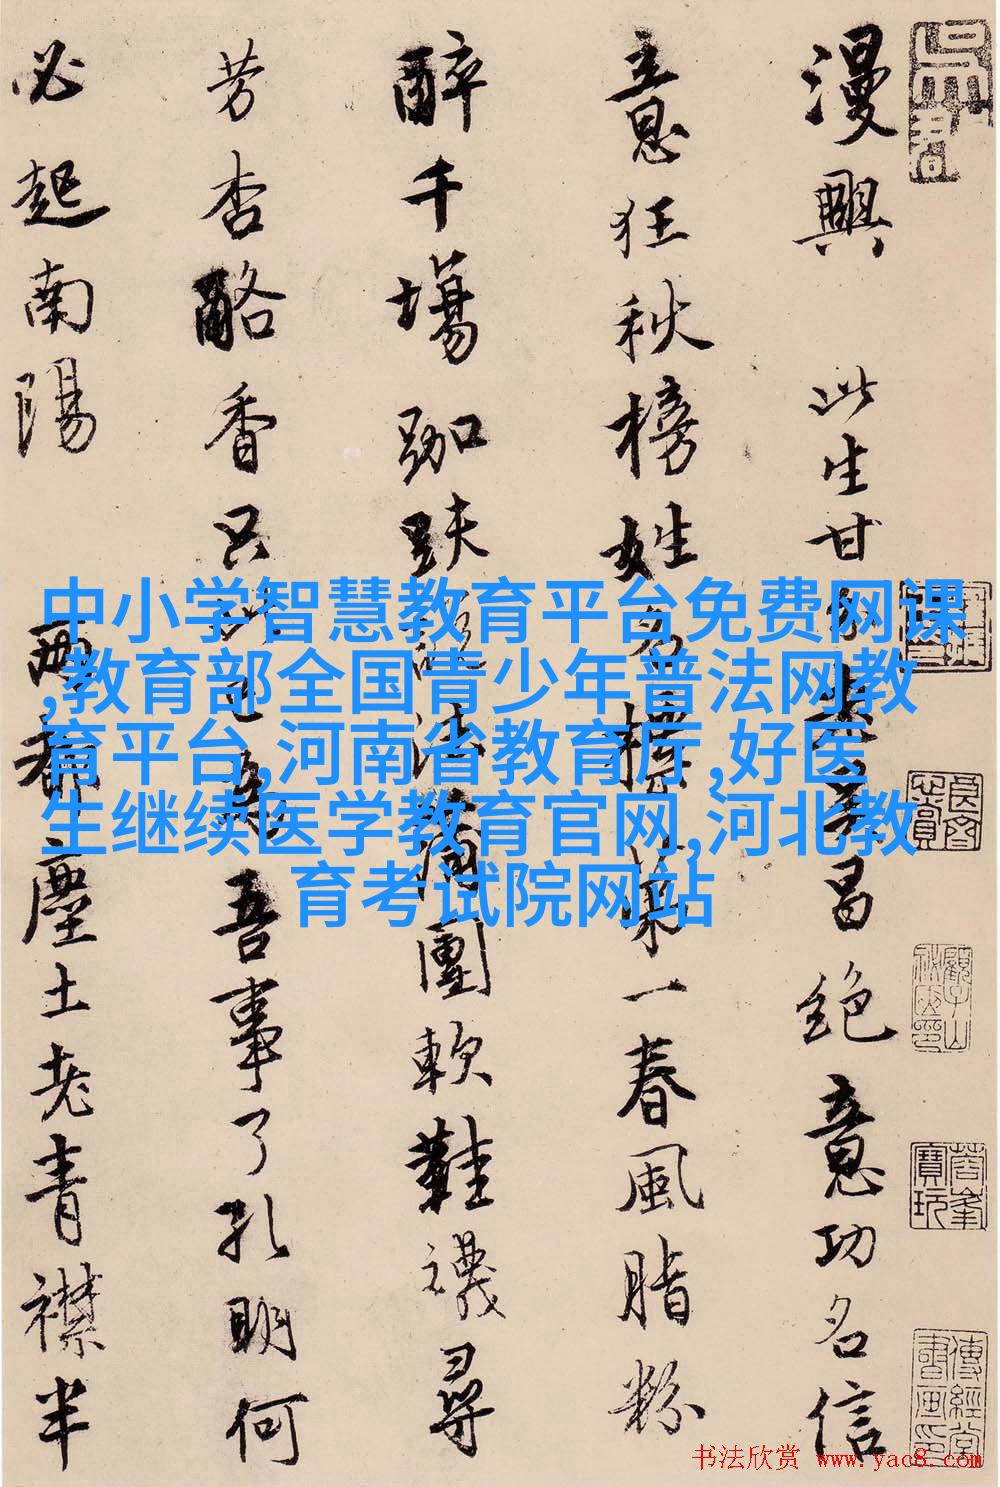 漫興 此生甘分老吳昌絕意功名信
意狂秋榜姓名標第一春風脂粉
醉千場跏趺說法蒲團軟鞋襪尋
芳杏酪香只此便為吾事了孔明何
必起南陽 兩塵土老青襟半
中小学智慧教育平台免费网课
,教育部全国青少年普法网教
育平台,河南省教育厅,好医
生继续医学教育官网,河北教
育考试院网站
蓉峯寶玩
书法欣赏 www.yac8.com